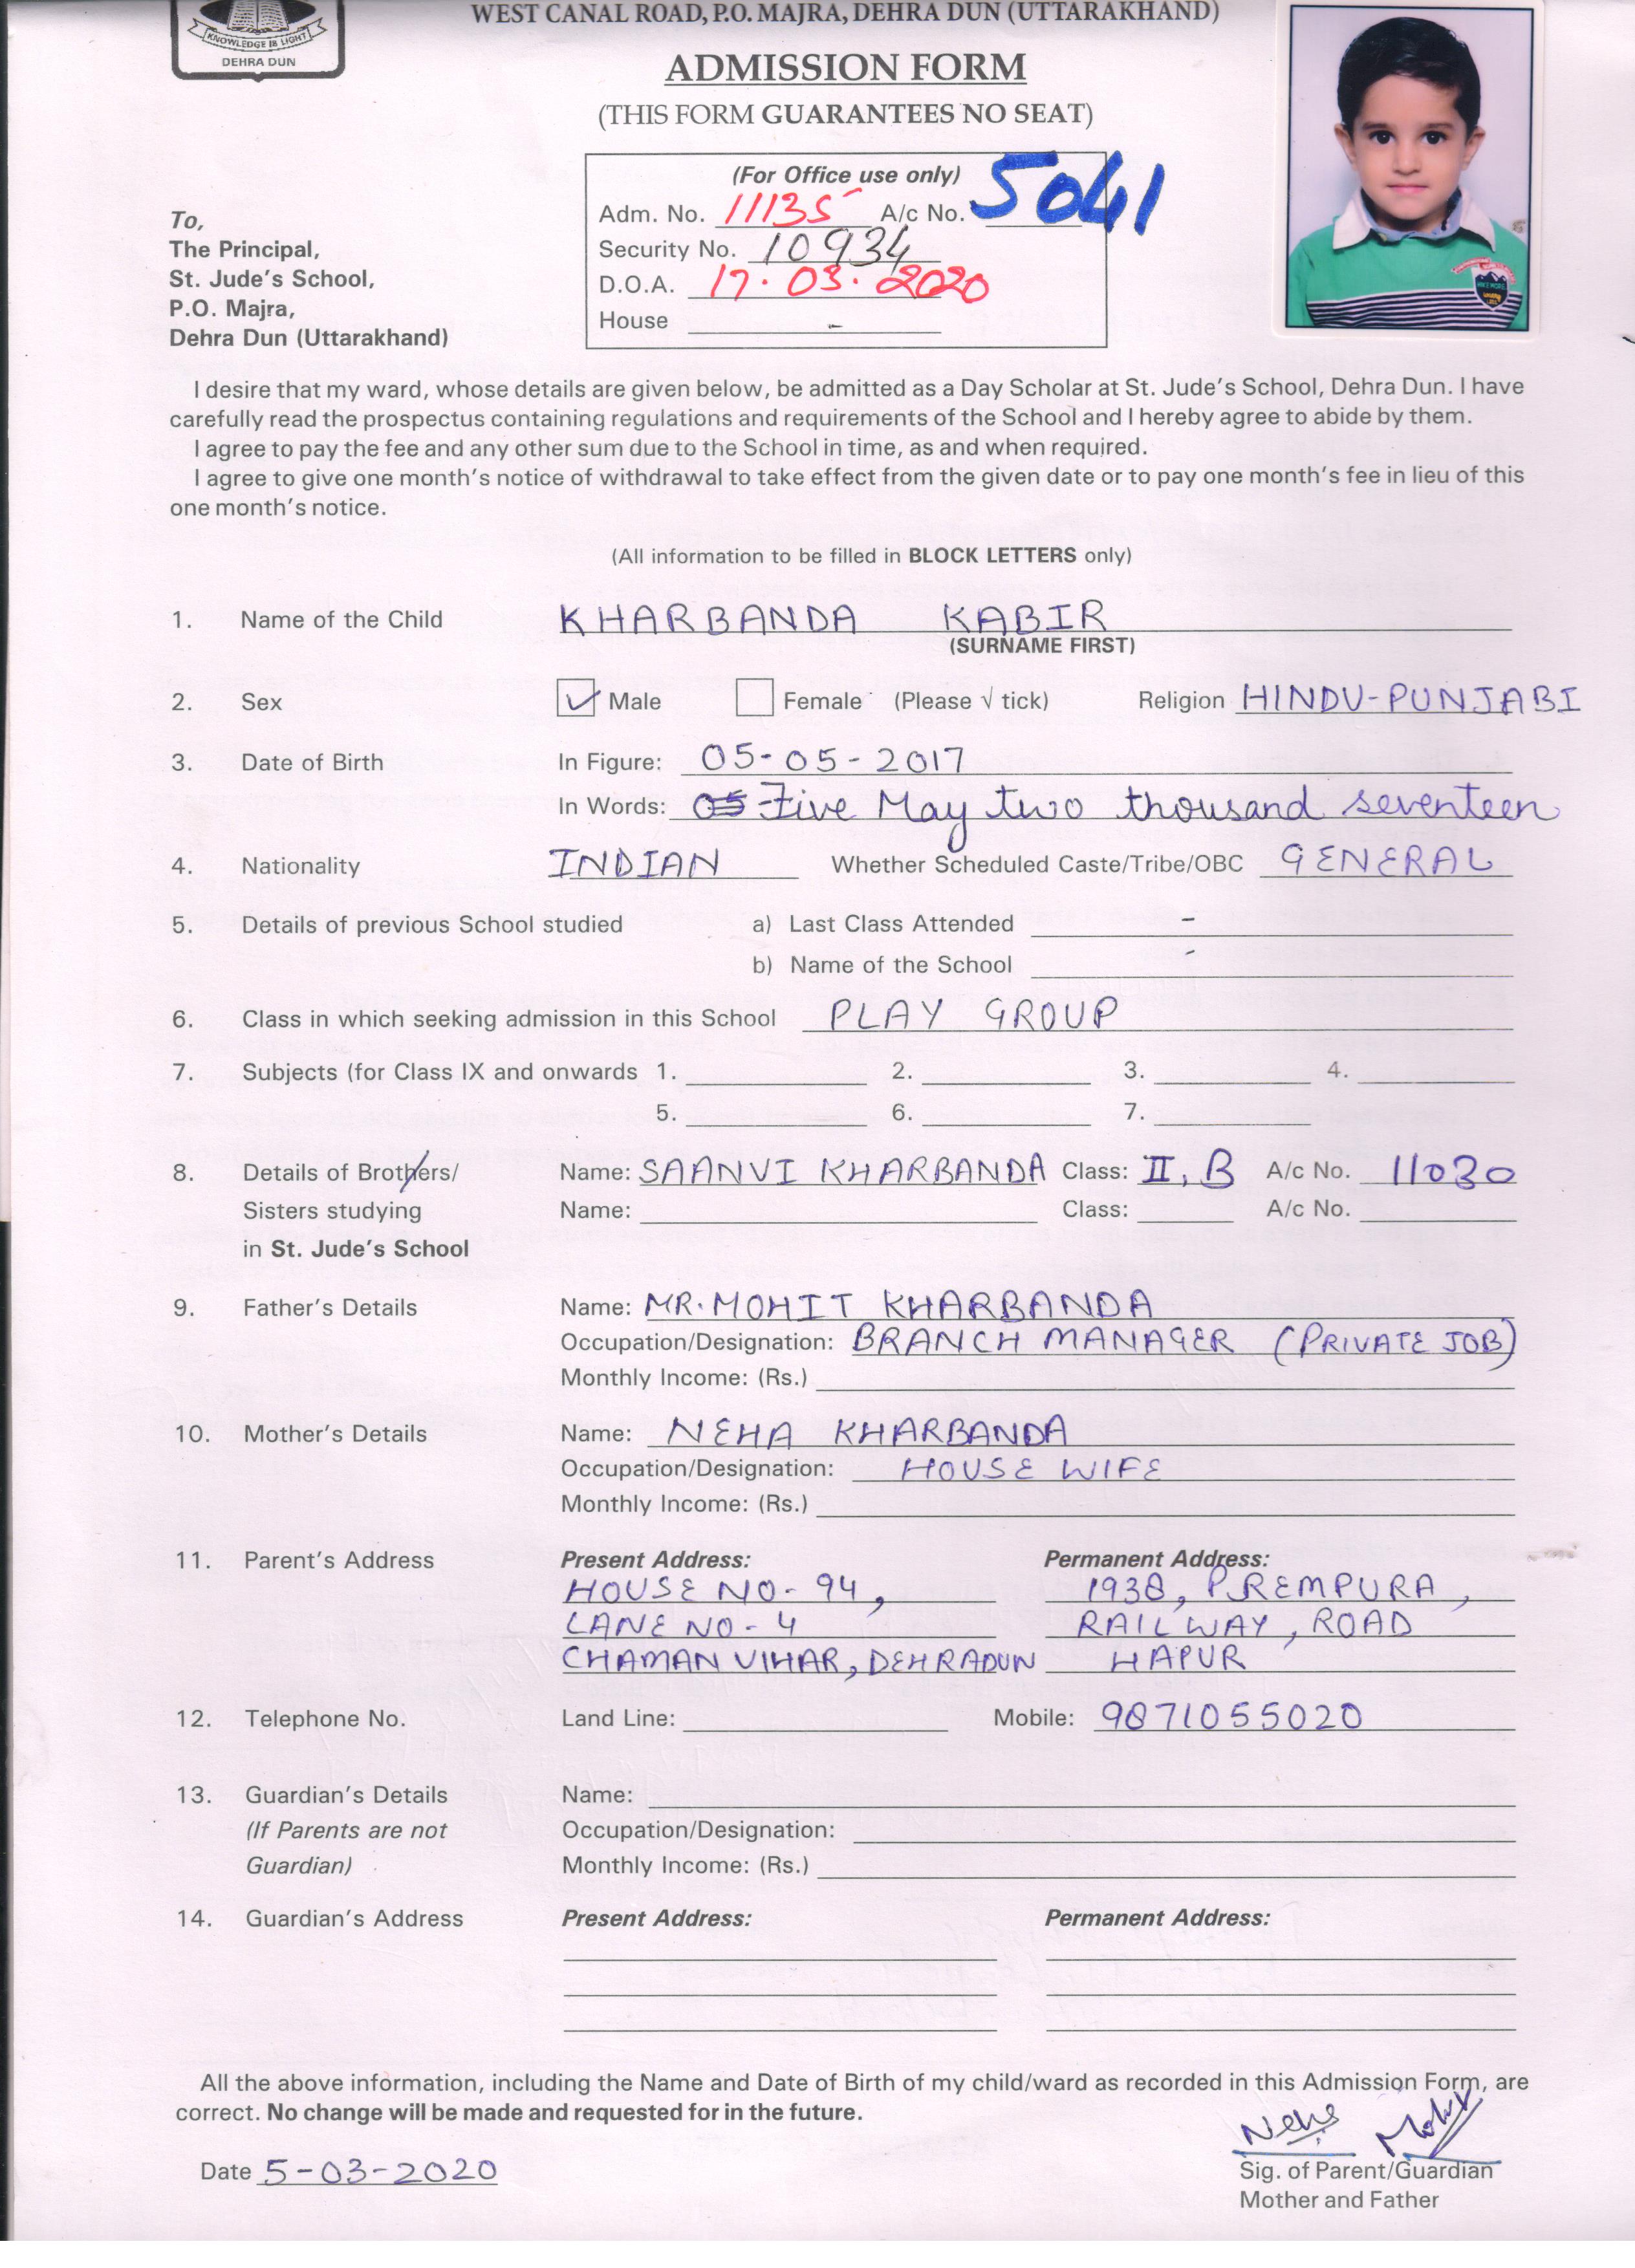 WEST CANAL ROAD, P.O. MAJRA, DEHRA DUN (UTTARAKHAND)
KNOWLEDGE IS LIGHT
DEHRA DUN
ADMISSION FORM
(THIS FORM GUARANTEES NO SEAT)
(For Office use only)
Adm. No. 11135 A/c No. 5041
Security No. 10934
D.O.A. 17.03.2020
House -
To,
The Principal,
St. Jude's School,
P.O. Majra,
Dehra Dun (Uttarakhand)
I desire that my ward, whose details are given below, be admitted as a Day Scholar at St. Jude's School, Dehra Dun. I have
carefully read the prospectus containing regulations and requirements of the School and I hereby agree to abide by them.
I agree to pay the fee and any other sum due to the School in time, as and when required.
I agree to give one month's notice of withdrawal to take effect from the given date or to pay one month's fee in lieu of this
one month's notice.
(All information to be filled in BLOCK LETTERS only)
1. Name of the Child KHARBANDA KABIR
(SURNAME FIRST)
2. Sex Male Female (Please √ tick) Religion HINDU-PUNJABI
3. Date of Birth In Figure: 05-05-2017
In Words: 05 Five May two thousand seventeen
4. Nationality INDIAN Whether Scheduled Caste/Tribe/OBC GENERAL
5. Details of previous School studied a) Last Class Attended -
b) Name of the School -
6. Class in which seeking admission in this School PLAY GROUP
7. Subjects (for Class IX and onwards 1. 2. 3. 4.
5. 6. 7.
8. Details of Brothers/ Name: SAANVI KHARBANDA Class: II, B A/c No. 11030
Sisters studying Name: Class: A/c No.
in St. Jude's School
9. Father's Details Name: MR. MOHIT KHARBANDA
Occupation/Designation: BRANCH MANAGER (PRIVATE JOB)
Monthly Income: (Rs.)
10. Mother's Details Name: NEHA KHARBANDA
Occupation/Designation: HOUSE WIFE
Monthly Income: (Rs.)
11. Parent's Address Present Address: Permanent Address:
HOUSE NO- 94, 1938, PREMPURA,
LANE NO- 4 RAILWAY, ROAD
CHAMAN VIHAR, DEHRADUN HAPUR
12. Telephone No. Land Line: Mobile: 9871055020
13. Guardian's Details Name:
(If Parents are not Occupation/Designation:
Guardian) Monthly Income: (Rs.)
14. Guardian's Address Present Address: Permanent Address:
All the above information, including the Name and Date of Birth of my child/ward as recorded in this Admission Form, are
correct. No change will be made and requested for in the future.
Neha Mohit
Date 5-03-2020
Sig. of Parent/Guardian
Mother and Father